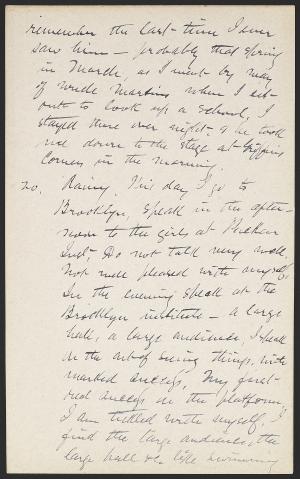 remember the last time I ever
saw him — probably that Spring
in March, as I went by way
of Uncle Martins when I set
out to look up a School, I
stayed there over night — & he took
me down to the stage at
Corners in the morning.
20. Rainy. This day I go to
Brooklyn, speak in the after-
noon to the girls at Packer
Inst, Do not talk very well.
Not well pleased with myself.
In the evening speak at the
Brooklyn institute — a large
hall, a large audience, I speak
on the art of seeing things, with
marked success, my great-
est success on the platform.
I am tickled with myself, I
find the large audience, the
large hall &c. like swimming